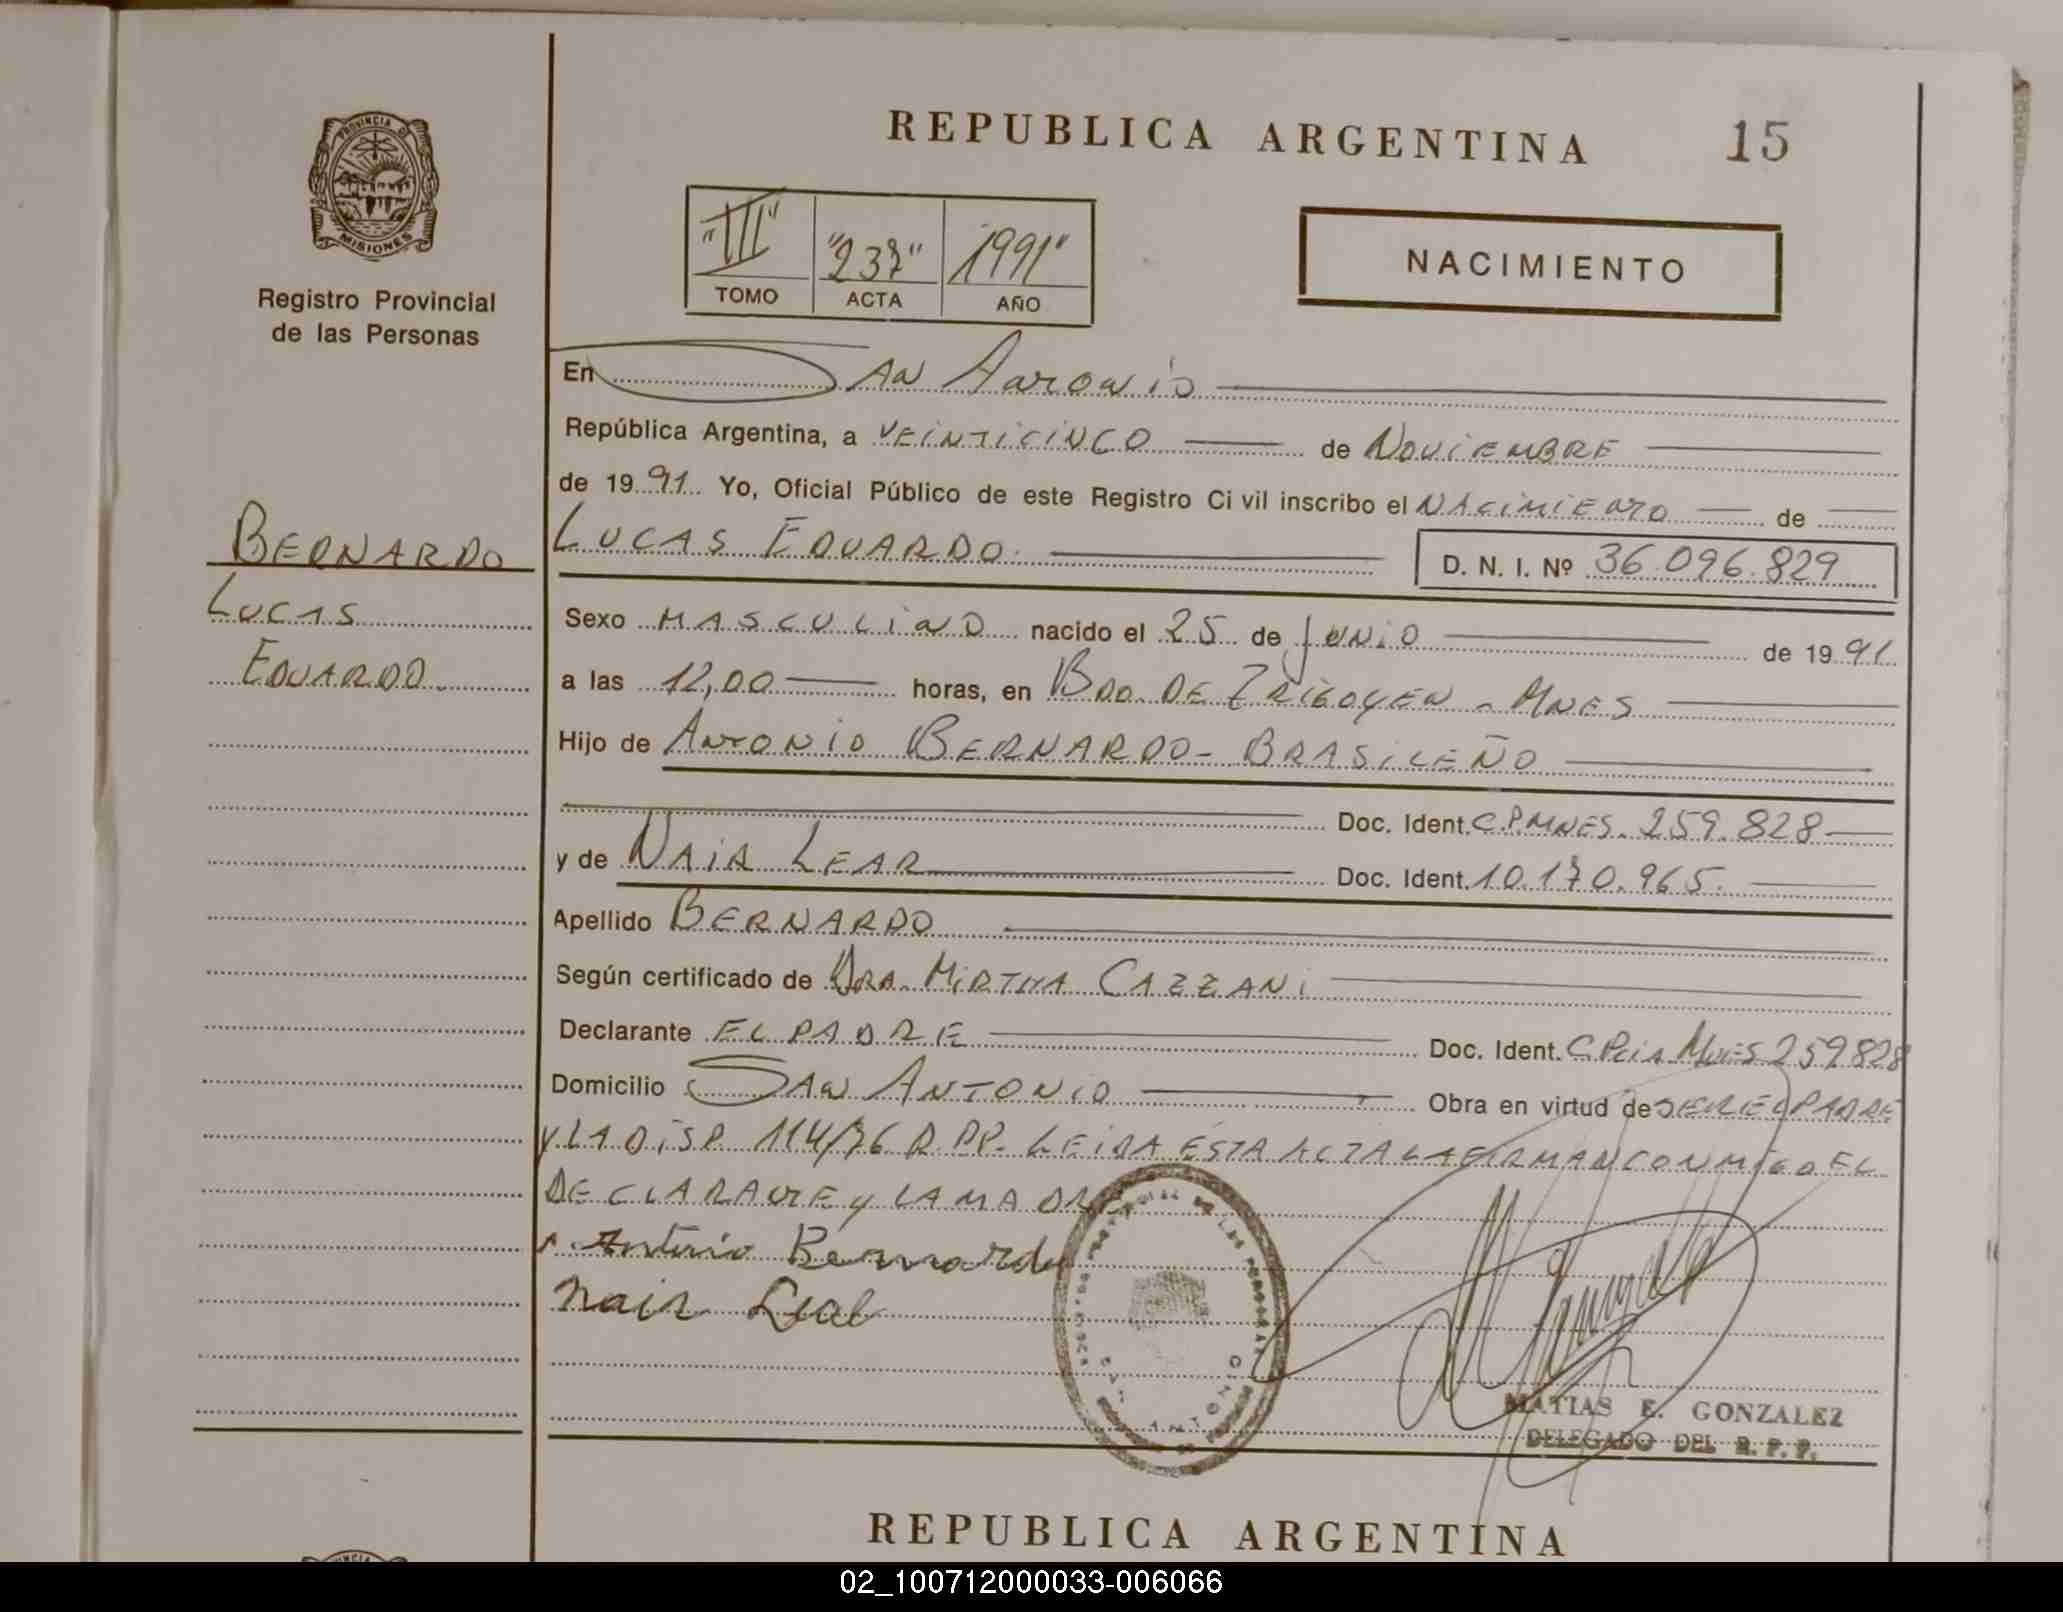 REPUBLICA ARGENTINA 15
PROVINCIA DE
MISIONES
Registro Provincial
de las Personas
"III" "237" 1991"
TOMO ACTA AÑO
NACIMIENTO
En SAN ANTONIO
República Argentina, a VEINTICINCO de NOVIEMBRE
de 19 91. Yo, Oficial Público de este Registro Civil inscribo el NACIMIENTO de
LUCAS EDUARDO. D. N. I. Nº 36.096.829
BERNARDO
LUCAS
EDUARDO.
Sexo MASCULINO nacido el 25 de JUNIO de 19 91
a las 12,00 horas, en BDO. DE IRIGOYEN - MNES
Hijo de ANTONIO BERNARDO - BRASILEÑO
Doc. Ident. C.P.MNES. 259.828
y de NAIR LEAR Doc. Ident. 10.170.965.
Apellido BERNARDO
Según certificado de DRA. MIRTHA CAZZANI
Declarante EL PADRE Doc. Ident. C.Pcia MNES 259828
Domicilio SAN ANTONIO Obra en virtud de SER EL PADRE
Y LA DISP. 114/76 R.PP. LEIDA ESTA ACTA LA FIRMAN CONMIGO EL
DECLARANTE y LA MADRE.
Antonio Bernardo
Nair Leal
MATIAS E. GONZALEZ
DELEGADO DEL R. P. P.
REPUBLICA ARGENTINA
02_100712000033-006066